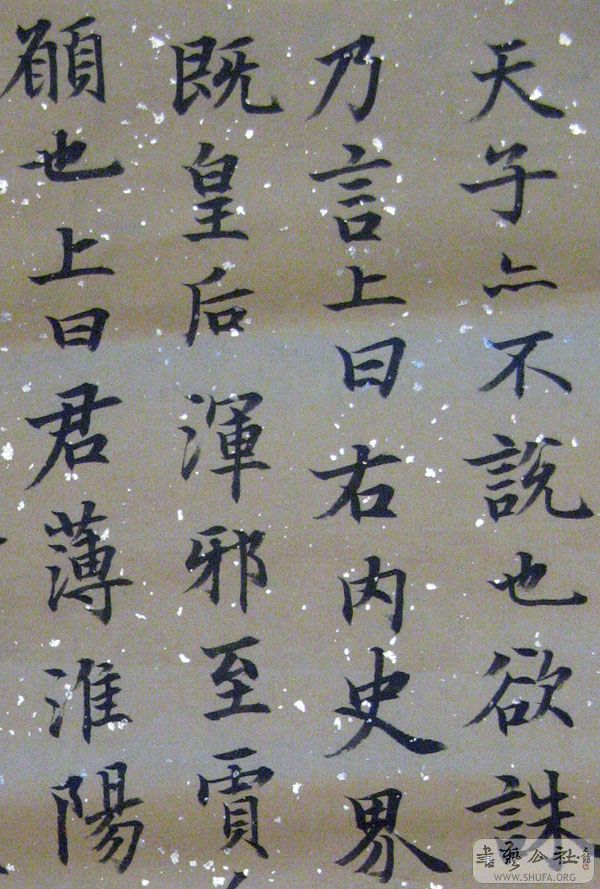 天子亦不說也欲誅
乃言上曰右內史界
既皇后渾邪至賈
願也上曰君薄淮陽
書藝公社
WWW.SHUFA.ORG